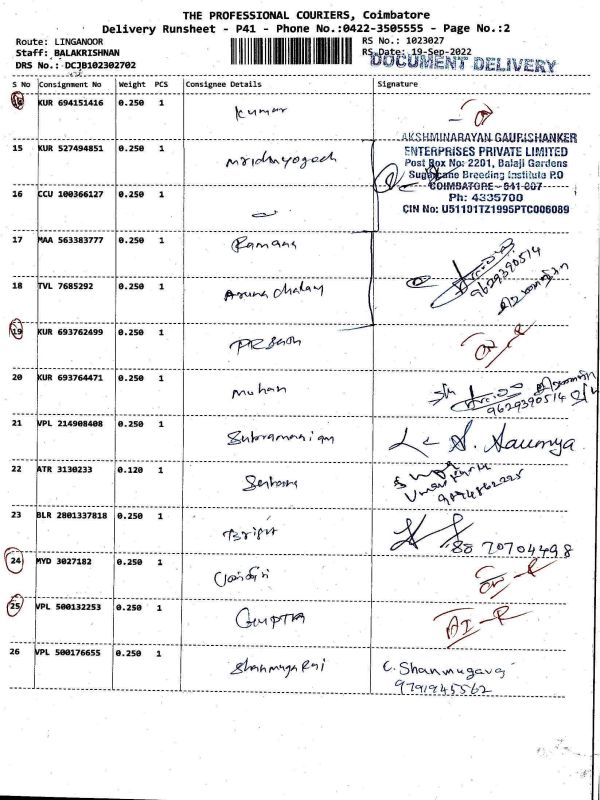 THE PROFESSIONAL COURIERS, Coimbatore
Delivery Runsheet - P41 - Phone No.:0422-3505555 - Page No.:2
Route: LINGANOOR
RS No.: 1023027
Staff: BALAKRISHNAN
RS Date: 19-Sep-2022
DRS No.: DCJB102302702
DOCUMENT DELIVERY
S No Consignment No Weight PCS Consignee Details Signature
KUR 694151416 0.250 1 Kumar
15 KUR 527494851 0.250 1
LAKSHMINARAYAN GAURISHANKER
ENTERPRISES PRIVATE LIMITED
Post Box No: 2201, Balaji Gardens
Sugarcane Breeding Institute P.O
COIMBATORE - 641 007
Ph: 4335700
CIN No: U51101TZ1995PTC006089
16 CCU 100366127 0.250 1
17 MAA 563383777 0.250 1 Ramana
18 TVL 7685292 0.250 1 Arunachalam
9629390514
19 KUR 693762499 0.250 1
20 KUR 693764471 0.250 1 Mohan
9629390514
21 VPL 214908408 0.250 1 Subramaniam S. Saumya
22 ATR 3130233 0.120 1
23 BLR 2801337818 0.250 1
8870704498
24 MYD 3027182 0.250 1
25 VPL 500132253 0.250 1 Gupta
26 VPL 500176655 0.250 1 Shanmuga Raj C. Shanmugaraj
9791945562